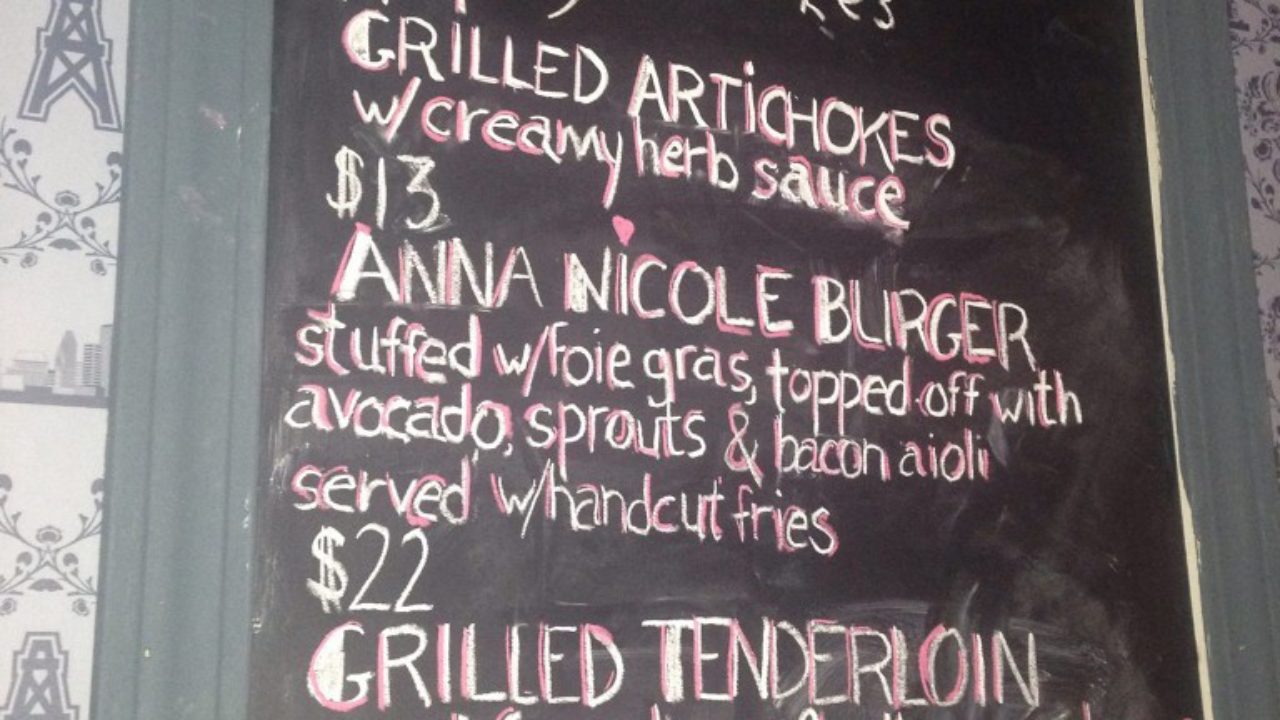 GRILLED ARTICHOKES
w/creamy herb sauce
$13
ANNA NICOLE BURGER
stuffed w/foie gras, topped off with
avocado, sprouts & bacon aioli
served w/handcut fries
$22
GRILLED TENDERLOIN